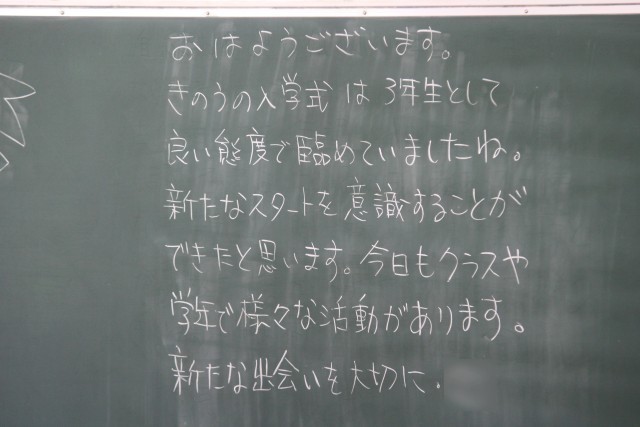 おはようございます。
きのうの入学式は3年生として
良い態度で臨めていましたね。
新たなスタートを意識することが
できたと思います。今日もクラスや
学年で様々な活動があります。
新たな出会いを大切に.